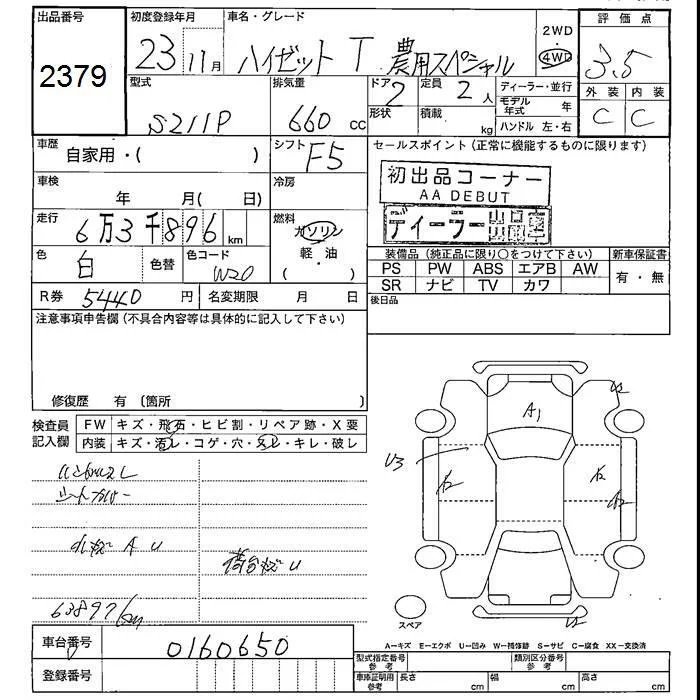 出品番号
2379
初度登録年月
23 11月
車名・グレード
ハイゼット T 農用スペシャル
2WD
4WD
評価点
3.5
外装 内装
C C
型式
S211P
排気量
660 cc
ドア
2
形状
定員
2 人
積載
kg
ディーラー・並行
モデル年式 年
ハンドル 左・右
車歴
自家用・( )
シフト
F5
セールスポイント (正常に機能するものに限ります)
初出品コーナー
AA DEBUT
ディーラー出品
車検
年 月( 日)
冷房
走行
6万3千896 km
燃料
ガソリン
軽・油
( ・ )
色
白
色替
色コード
W20
装備品 (純正品に限り○をつけて下さい)
新車保証書
PS PW ABS エアB AW
SR ナビ TV カワ
有・無
R券 5440 円
名変期限 月 日
後日品
注意事項申告欄 (不具合内容等は具体的に記入して下さい)
修復歴 有 (箇所 )
検査員記入欄
FW キズ・飛石・ヒビ割・リペア跡・X要
内装 キズ・汚レ・コゲ・穴・スレ・キレ・破レ
シートカバー
小キズ A U
荷台キズ U
63897km
A1
U2
U3
A2
A2
A2
U2
スペア
A−キズ E−エクボ U−凹み W−補修跡 S−サビ C−腐食 XX−交換済
車台番号
0160650
登録番号
型式指定番号 参考
類別区分番号 参考
車庫証明用 参考
長さ cm
幅 cm
高さ cm